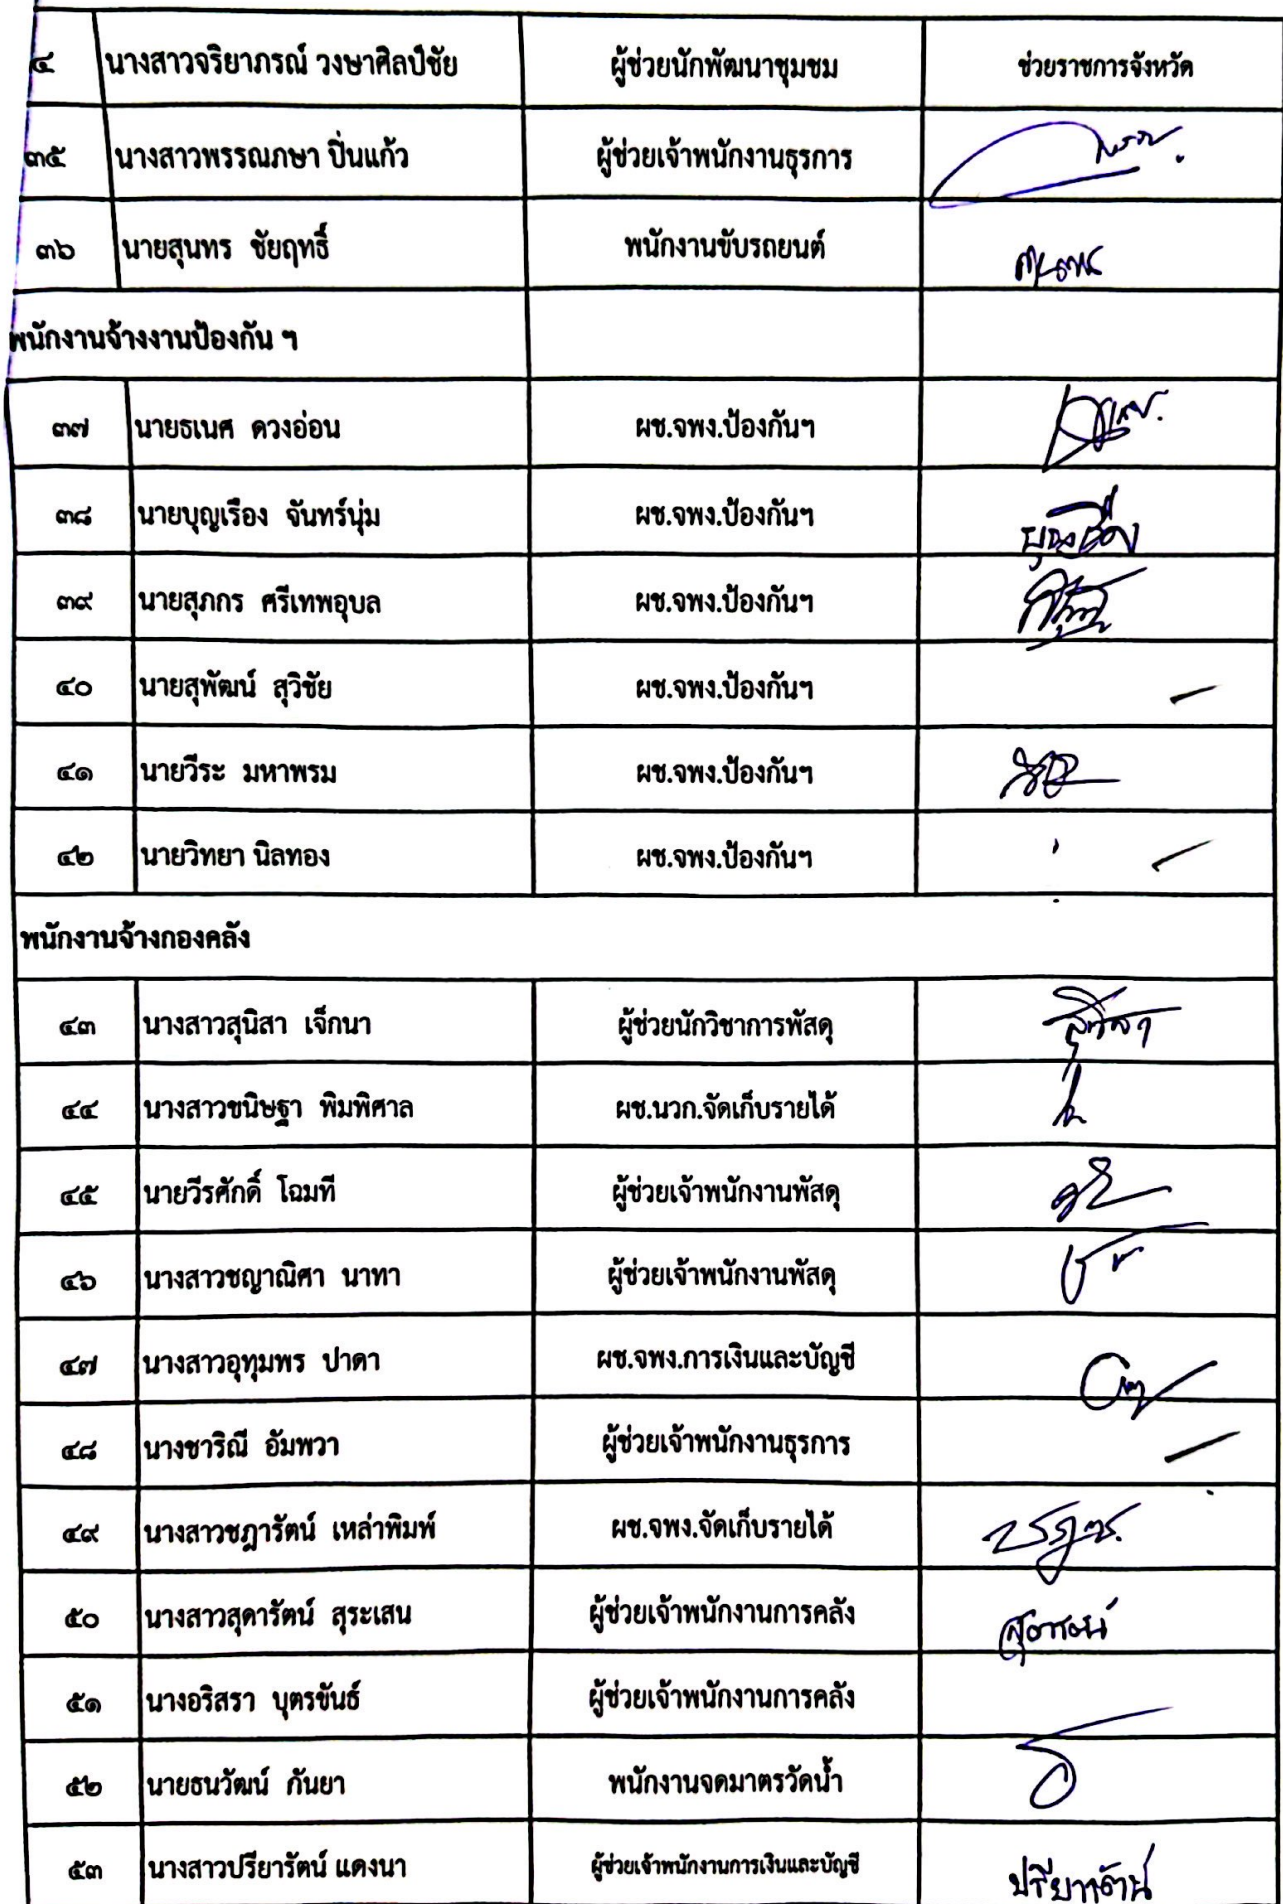 ๔ นางสาวจริยาภรณ์ วงษาศิลป์ชัย ผู้ช่วยนักพัฒนาชุมชน ช่วยราชการจังหวัด
๓๕ นางสาวพรรณภษา ปิ่นแก้ว ผู้ช่วยเจ้าพนักงานธุรการ
๓๖ นายสุนทร ชัยฤทธิ์ พนักงานขับรถยนต์
พนักงานจ้างงานป้องกัน ฯ
๓๗ นายธเนศ ดวงอ่อน ผช.จพง.ป้องกันฯ
๓๘ นายบุญเรือง จันทร์นุ่ม ผช.จพง.ป้องกันฯ บุญเรือง
๓๙ นายสุภกร ศรีเทพอุบล ผช.จพง.ป้องกันฯ
๔๐ นายสุพัฒน์ สุวิชัย ผช.จพง.ป้องกันฯ
๔๑ นายวีระ มหาพรม ผช.จพง.ป้องกันฯ
๔๒ นายวิทยา นิลทอง ผช.จพง.ป้องกันฯ
พนักงานจ้างกองคลัง
๔๓ นางสาวสุนิสา เจ็กนา ผู้ช่วยนักวิชาการพัสดุ สุนิสา
๔๔ นางสาวขนิษฐา พิมพิศาล ผช.นวก.จัดเก็บรายได้
๔๕ นายวีรศักดิ์ โฉมที ผู้ช่วยเจ้าพนักงานพัสดุ
๔๖ นางสาวชญาณิศา นาทา ผู้ช่วยเจ้าพนักงานพัสดุ
๔๗ นางสาวอุทุมพร ปาดา ผช.จพง.การเงินและบัญชี
๔๘ นางชาริณี อัมพวา ผู้ช่วยเจ้าพนักงานธุรการ
๔๙ นางสาวชฎารัตน์ เหล่าพิมพ์ ผช.จพง.จัดเก็บรายได้
๕๐ นางสาวสุดารัตน์ สุระเสน ผู้ช่วยเจ้าพนักงานการคลัง สุดารัตน์
๕๑ นางอริสรา บุตรขันธ์ ผู้ช่วยเจ้าพนักงานการคลัง
๕๒ นายธนวัฒน์ กันยา พนักงานจดมาตรวัดน้ำ
๕๓ นางสาวปรียารัตน์ แดงนา ผู้ช่วยเจ้าพนักงานการเงินและบัญชี ปรียารัตน์